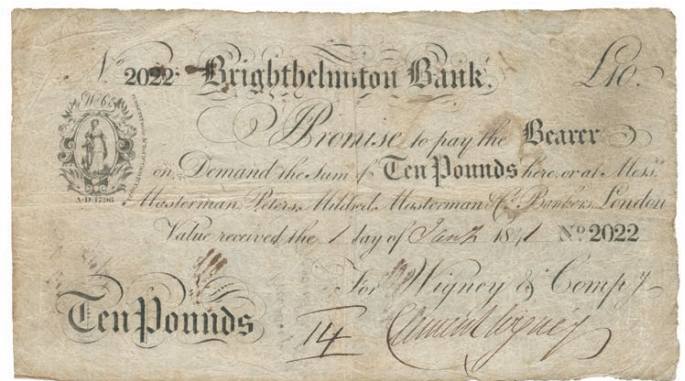 No 2022 Brighthelmston Bank. £10.
I Promise to pay the Bearer
on Demand the Sum of Ten Pounds here, or at Messrs
Masterman, Peters, Mildred, Masterman & Co Bankers, London
Value received the 1 day of Jany 1841 No 2022
For Wigney & Compy
Ten Pounds 14 Clement Wigney
A.D. 1796